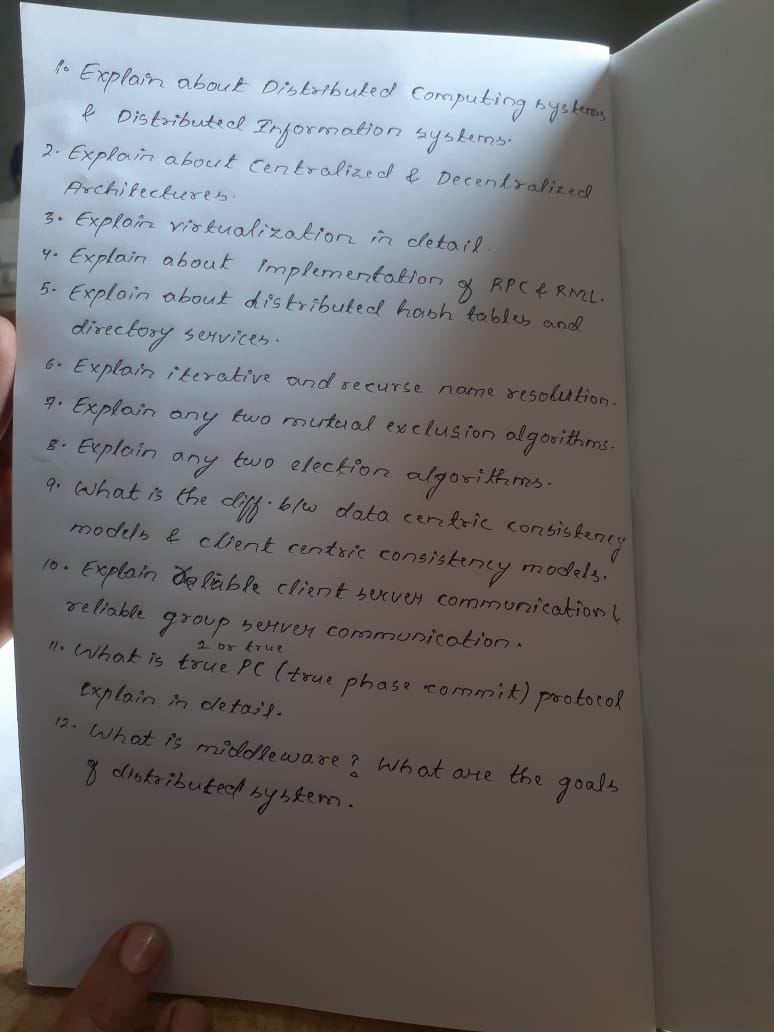 1. Explain about Distributed Computing systems
& Distributed Information systems.
2. Explain about Centralized & Decentralized
Architectures.
3. Explain virtualization in detail.
4. Explain about implementation of RPC & RMI.
5. Explain about distributed hash tables and
directory services.
6. Explain iterative and recurse name resolution.
7. Explain any two mutual exclusion algorithms.
8. Explain any two election algorithms.
9. What is the diff. b/w data centric consistency
models & client centric consistency models.
10. Explain client server communication &
reliable group server communication.
2 or true
11. What is true PC (true phase commit) protocol
explain in detail.
12. What is middleware? What are the goals
of distributed system.